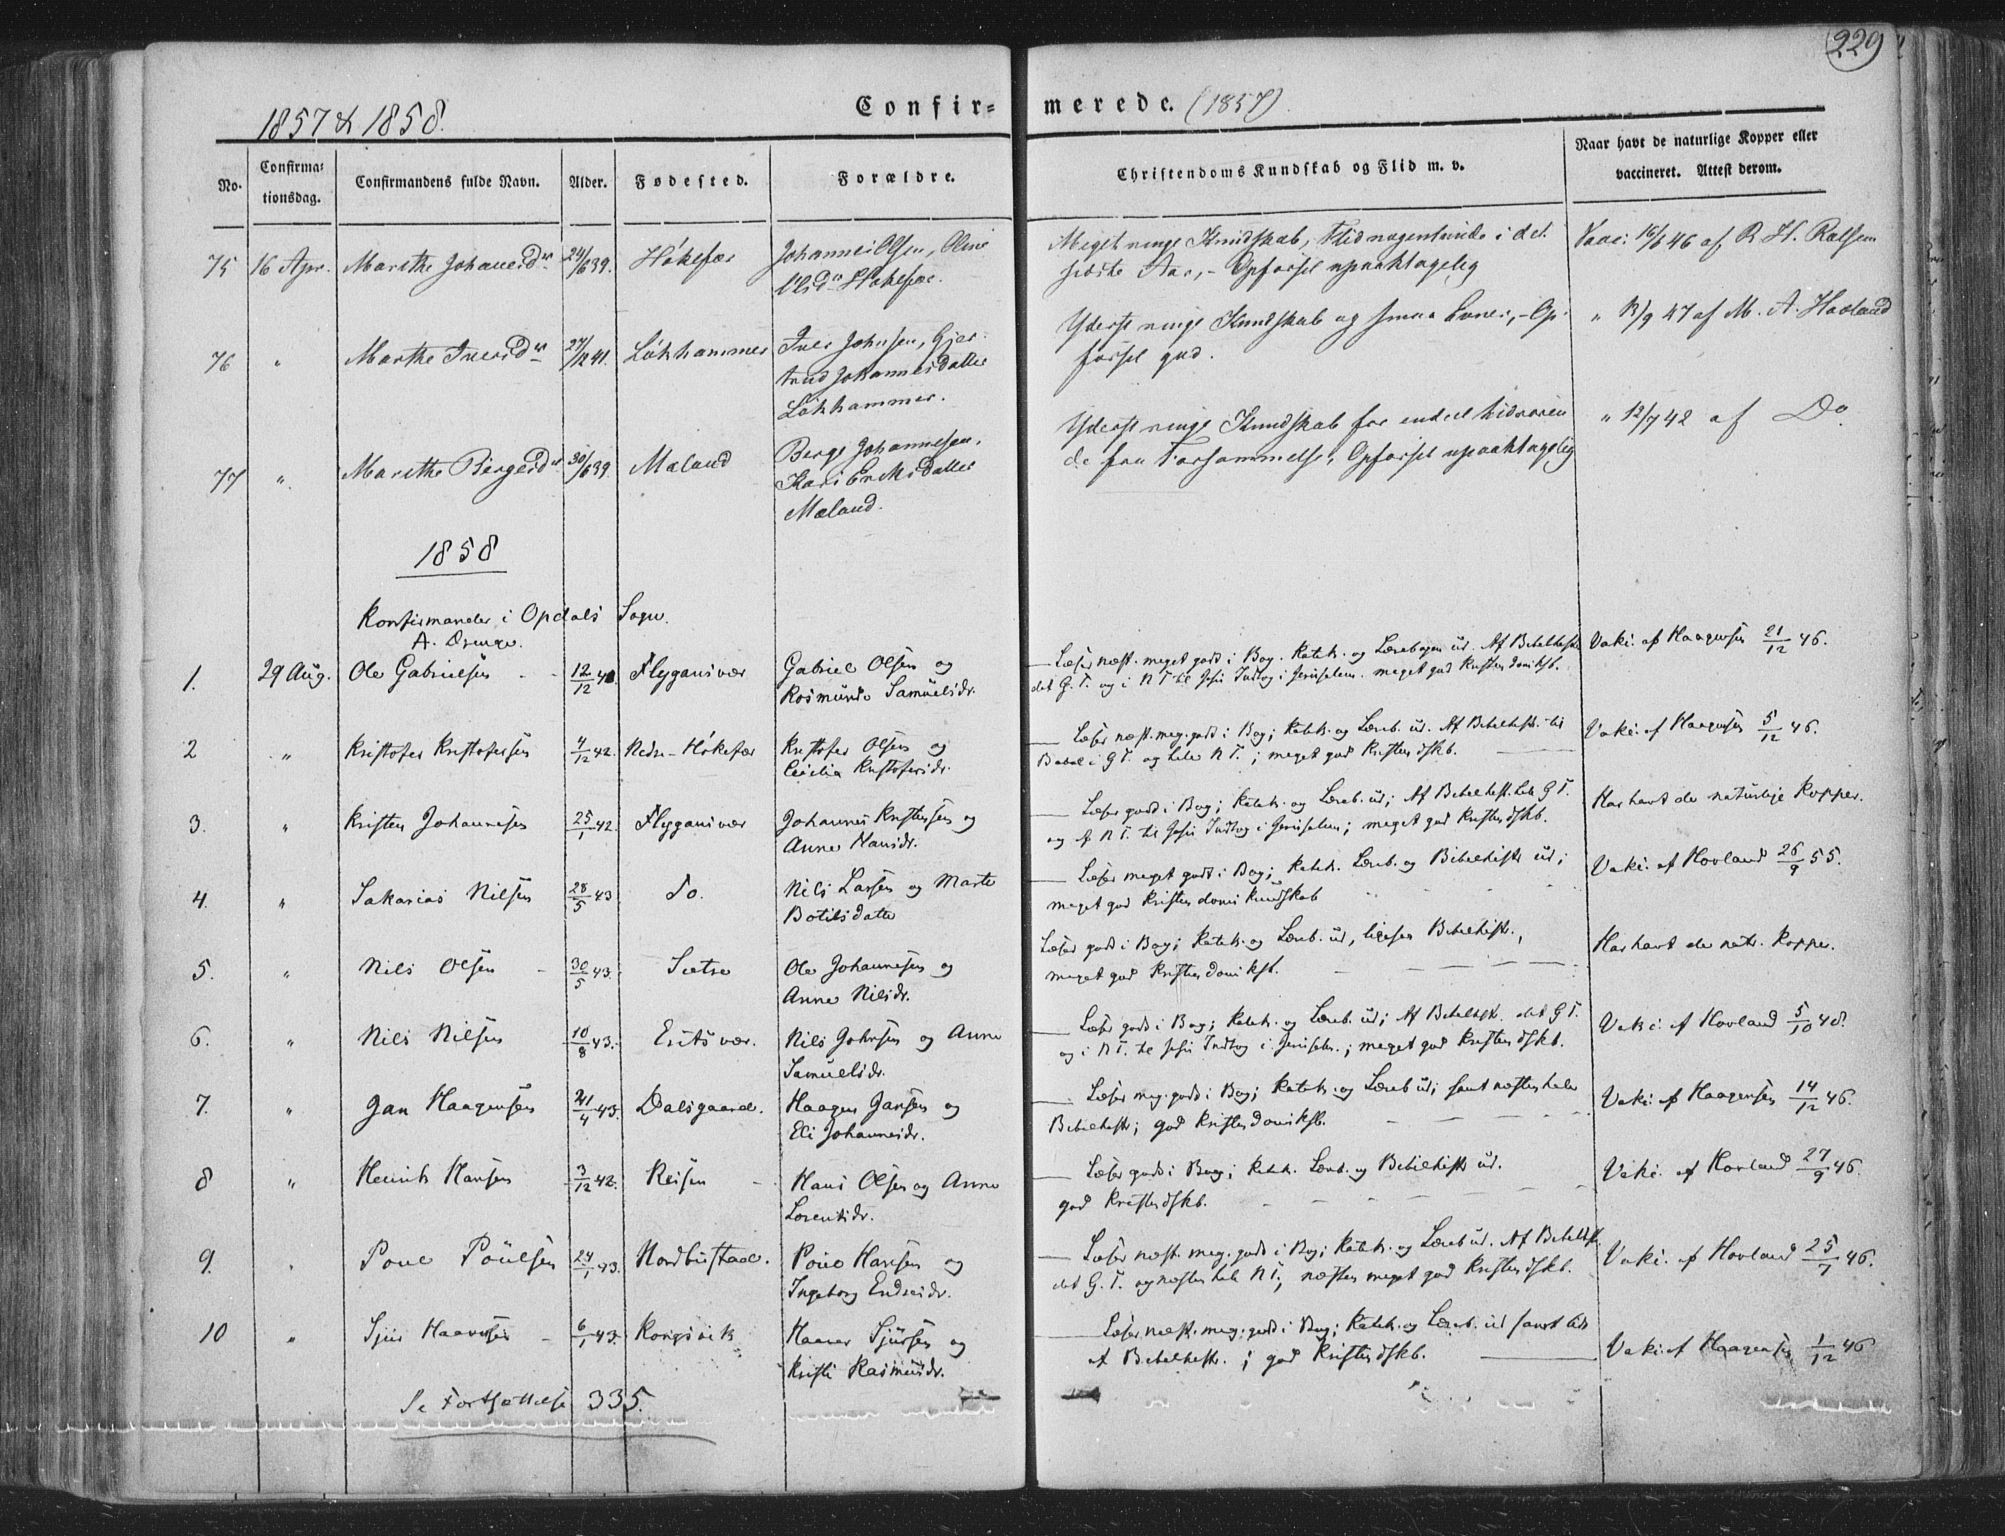 229
1857 & 1858.
Confirmerede. (1857)
No. Confirmationsdag. Confirmandens fulde Navn. Alder. Fødested. Forældre. Christendoms Kundskab og Flid m. v. Naar havt de naturlige Kopper eller vaccineret. Attest derom.
75 16 Apr. Marithe Johannesdr 24/6 39. Høkefær Johannes Olsen, Oline Meget ringe Kundskab, Flid nogenlunde i det Vacc: 16/6 46 af
Olsdr Høkefær. sidste Aar, - Opførsel upaaklagelig
76 " Marthe Iversdr 27/12 41. Løkhammer Iver Johnsen, Gjer- Yderst ringe Kundskab og smaa Evner, - Op- " 13/9 47 af M. A. Havland
trud Johannesdatter førsel god.
Løkhammer.
77 " Marithe Bergesdr 30/6 39. Mæland Berge Johannesen, Yderst ringe Kundskab for endeel hidrøren " 12/7 42 af Do
Kari Eriksdatter de fra Forsømmelse, Opførsel upaaklagelig
Mæland.
1858
Konfirmander i Opdals Sogn.
A. Drenge.
1. 29 Aug. Ole Gabrielsen 12/12 41 Flygansvær Gabriel Olsen og Læser næst. meget godt i Bog. Katek. og Lærebogen ud. Af Bibelhist. Vaki. af Haagensen 21/12 46.
Rosmunde Samuelsdr. det G. T. og i N T til Jesu Indtog i Jerusalem. meget god Kristendomskst.
2 " Kristofer Kristofersen 4/12 42. Nedre-Høkefær Kristofer Olsen og Læser næst. meg. godt i Bog; Katek. og Læreb. ud. Af Bibelhist. til Vaki. af Haagensen 5/12 46.
Cecilia Kristofersdr. Babel i G T. og hele N T.; meget god Kristendskb.
3. " Kristen Johannesen 25/1 42. Flygansvær Johannes Kristensen og Læser godt i Bog; Katek. og Læreb. ud; Af Bibelhist. hele G T. Har havt de naturlige Kopper.
Anne Hansdr. og af N T. til Jesu Indtog i Jerusalem; meget god Kristendskb.
4. " Sakarias Nilsen 28/5 43 Do. Nils Larsen og Marte Læser meget godt i Bog; Katek. Læreb. og Bibelhist. ud; Vaki. af Hovland 26/9 55.
Botilsdatter meget god Kristendomskundskab
5. " Nils Olsen 30/5 43. Sætre Ole Johannesen og Læser godt i Bog; Katek. og Læreb. ud, ligesaa Bibelhist., Har havt de natr. Kopper.
Anne Nilsdr. meget god Kristendomskst.
6. " Nils Nilsen 10/8 43. Eritsvær. Nils Johnsen og Anne Læser godt i Bog; Katek. og Læreb. ud; Af Bibelhist. det G T. Vaki. af Hovland 5/10 48.
Samuelsdr. og i N T. til Jesu Indtog i Jerusalm.; meget god Kristendskb.
7. " Jan Haagensen 21/4 43. Dalsgaard. Haagen Jansen og Læser meg. godt i Bog; Katek. og Læreb ud; samt næsten hele Vaki. af Haagensen 14/12 46.
Eli Johannesdr. Bibelhist.; god Kristendomskb.
8 " Heinrik Hansen 3/12 42. Reisen Hans Olsen og Anne Læser godt i Bog; Katek. Læreb. og Bibelhist. ud. Vaki. af Hovland 27/9 46.
Lorentsdr. god Kristendskb.
9. " Poul Poulsen 24/1 43. Nordbustad. Poul Hansen og Læser næst. meg. godt i Bog; Katek. og Læreb ud. Af Bibelhist. Vaki. af Hovland 25/7 46.
Ingeborg Endresdr. det G. T. og næsten hele N T.; næsten meget god Kristendskb.
10 " Sjur Haaversen 6/1 43. Kongsvik Haaver Sjursen og Læser næst. meg. godt i Bog; Katek. og Læreb. ud samt lidt Vaki. af Haagensen 1/12 46
Kristi Rasmusdr. af Bibelhist.; god Kristendskb.
Se Fortsættelse 335.